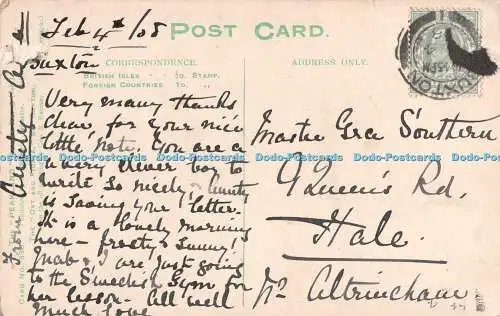 POST CARD.
Feb 4th /08
Buxton
CORRESPONDENCE.
BRITISH ISLES ½D. STAMP.
FOREIGN COUNTRIES 1D. "
ADDRESS ONLY.
Very many thanks
dear, for your nice
little note. You are a
very clever boy to
write so nicely, Aunty
is saving your letter.
It is a lovely morning
here - frosty & sunny!
& I are just going
to the Swedish Gym for
her lesson - All well
much love
From Aunty
Master Southern
9 Queen's Rd.
Hale.
Nr. Altrincham
BUXTON
Dodo-Postcards